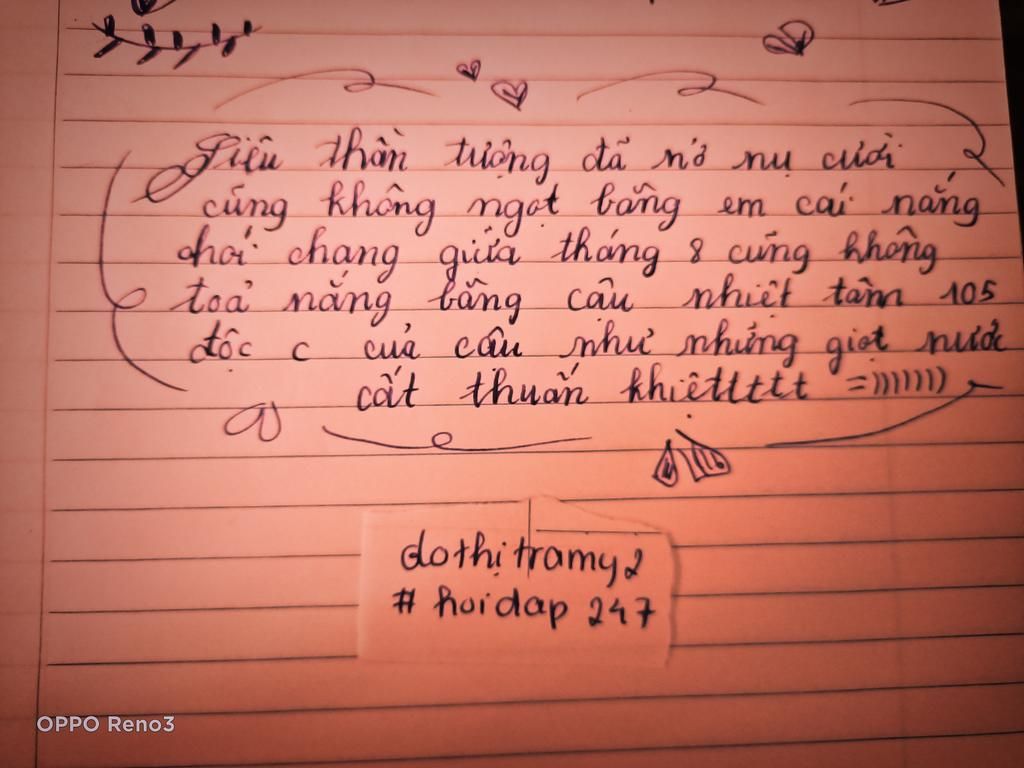 Siêu thần tượng đã nở nụ cười
cũng không ngọt bằng em cái nắng
chói chang giữa tháng 8 cũng không
toả nắng bằng câu nhiệt tâm 105
độc c của câu như những giọt nước
cất thuần khiêttttt =)))))))
dothitramy2
# hoidap 247
OPPO Reno3